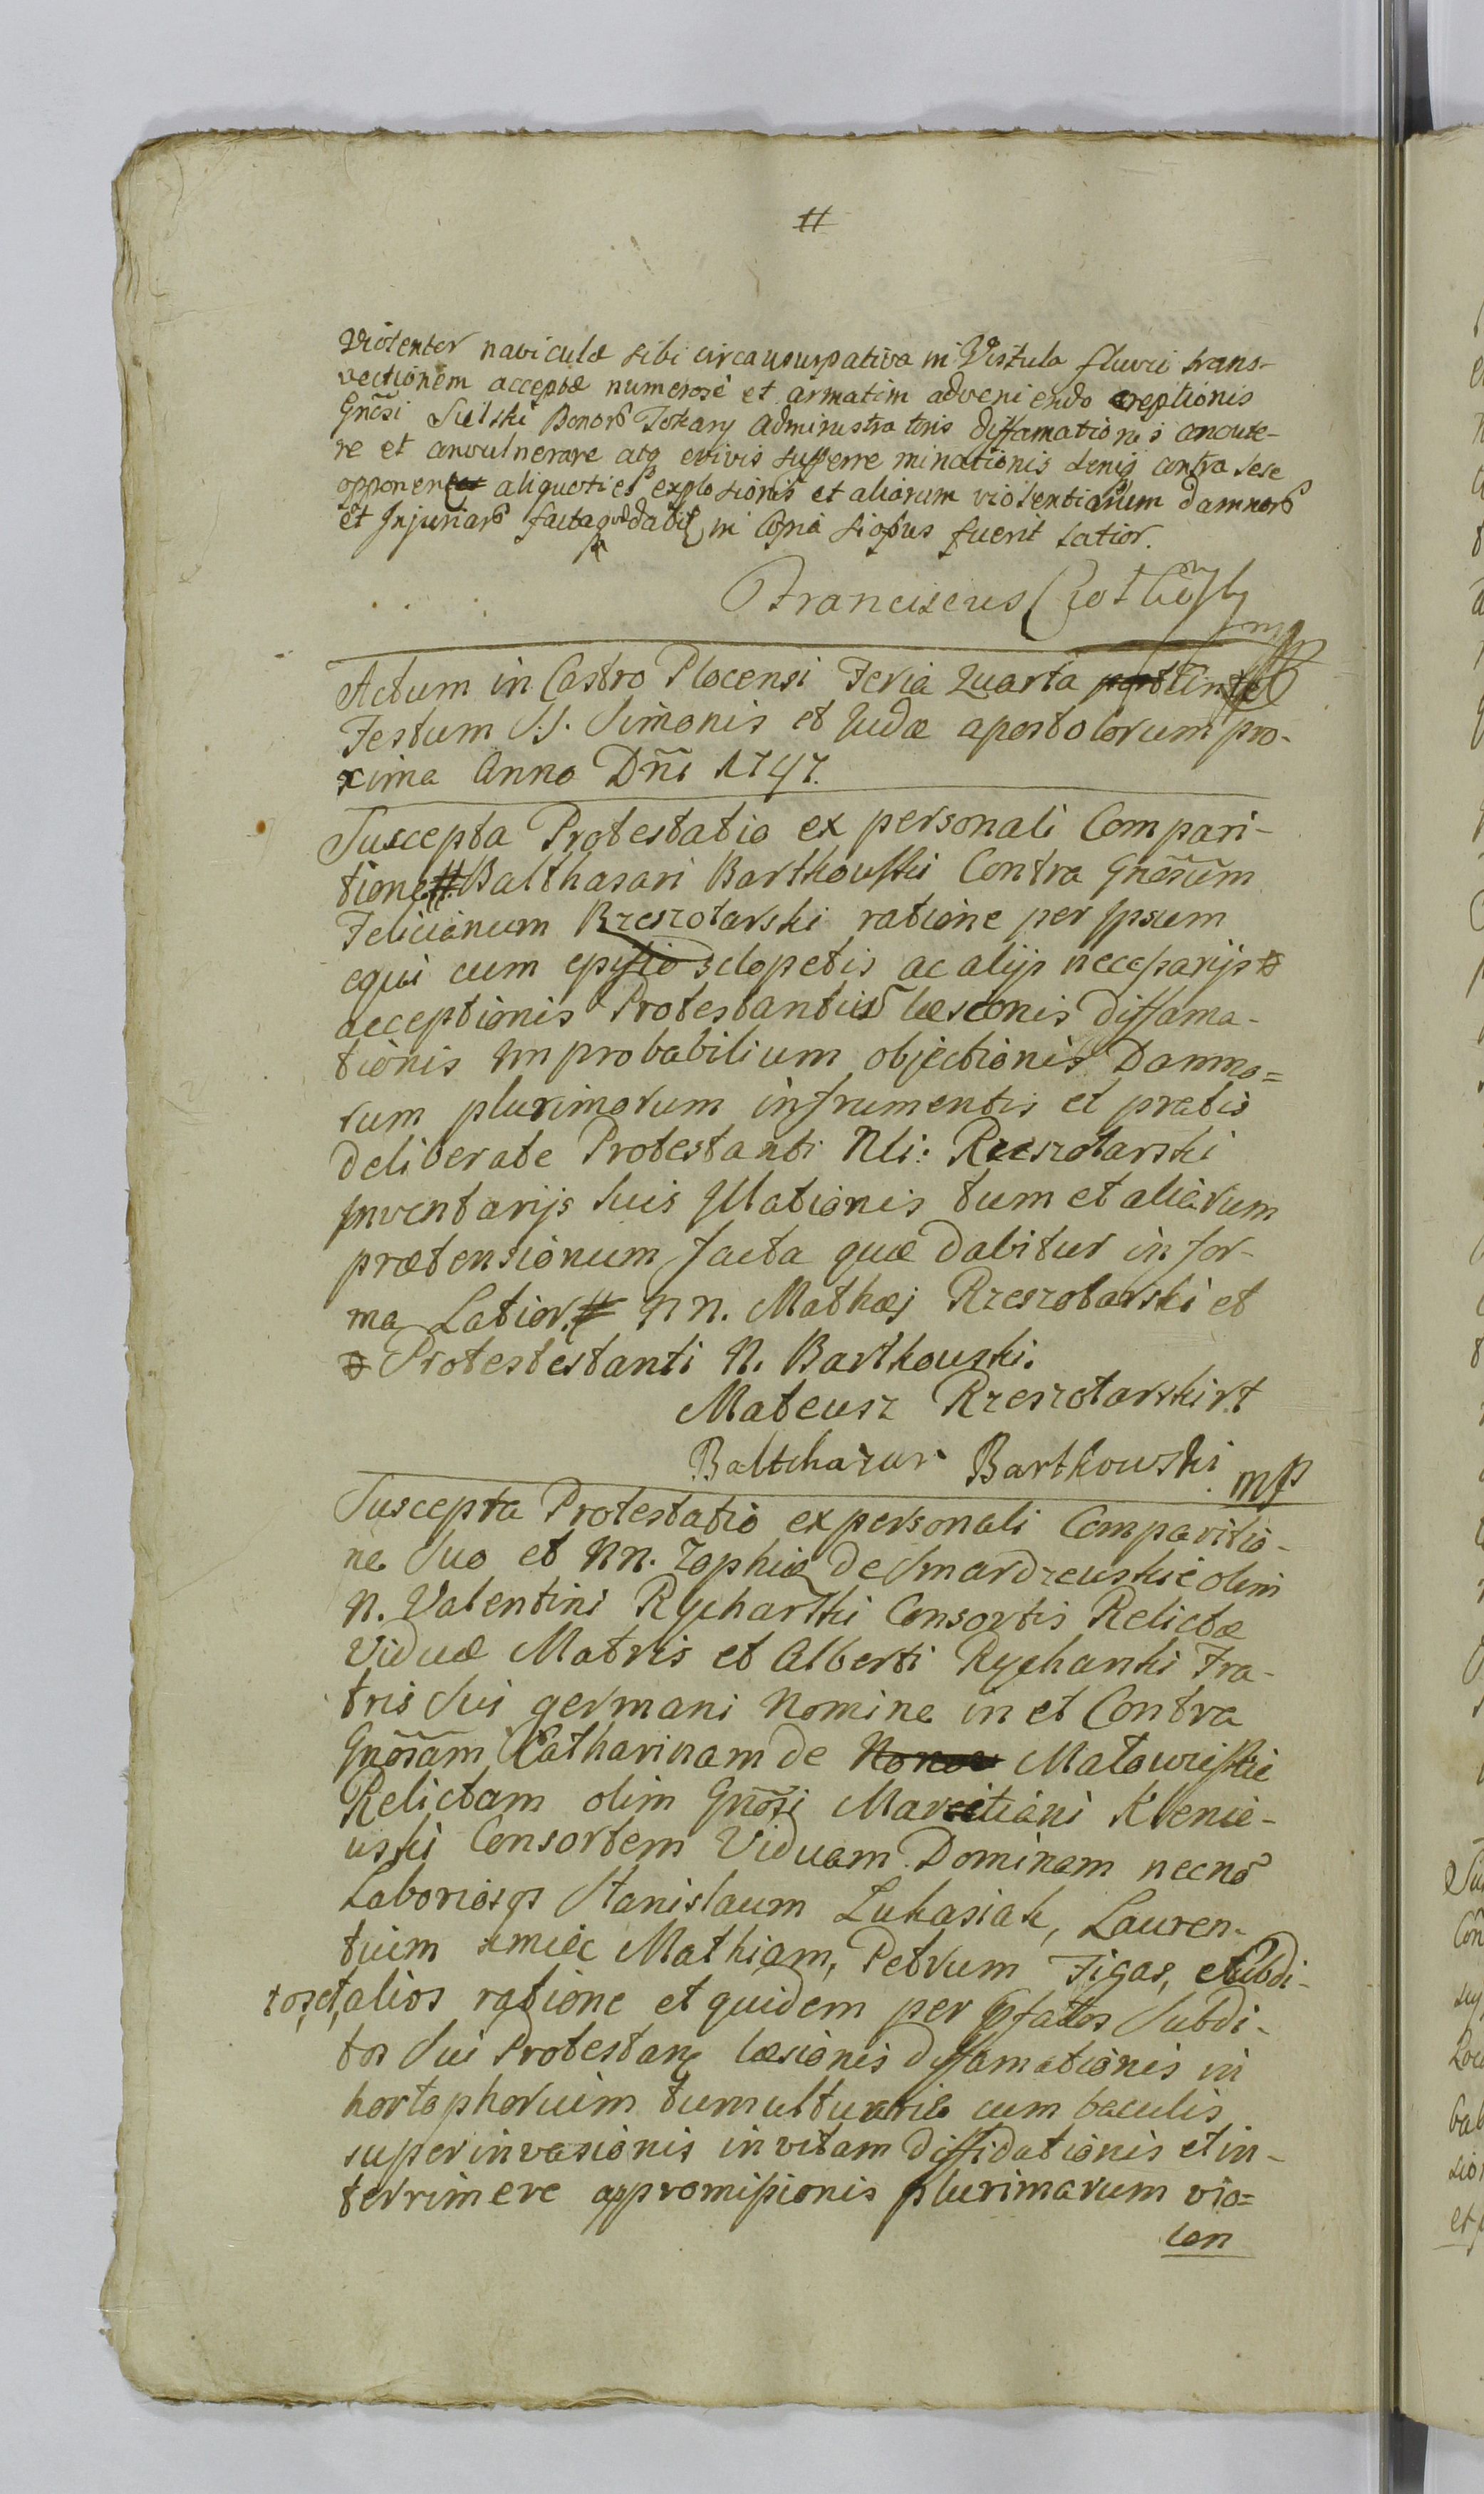 #
Violenter naviculæ sibi circa usurpativa in Vistula fluvii trans-
vectionem acceptæ numerose et armatim adveniendo ereptionis
Gnosi Sulski Bonor Tokary Administratoris diffamationis concute-
re et convulnerare atq evivis sufferre minationis deniq contra sese
opponen aliquoties explosionis et aliorum violentiarum damnor
et Injuriar facta q dabit in Copia siopus fuerit latior.
Franciscus
mp
Actum in Castro Plocensi Feria Quarta
Festum S.S. Simonis et Judæ apostolorum pro-
xima Anno Dñi 1747.
Suscepta Protestatio ex personali Compari-
tione # Balthasari Barthouski Contra Gnosum
Felicianum Rzeszotarski ratione per Ipsum
equi cum sclopetis ac alijs necessarijs
acceptionis Protestantis læsionis diffama-
tionis improbabilium objectionis Damno=
rum plurimorum infrumentis et pratis
deliberate Protestanti Nli: Rzeszotarski
Inventarijs suis Illationis tum et aliarum
prætensionum facta quæ dabitur in for-
ma Latior. # NN. Mathæj Rzeszotarski et
Protestestanti N. Barthouski.
Mateusz Rzeszotarski
Baltchazur Barthowski mp
Suscepta Protestatio ex personali Comparitio-
ne Suo et NN. Zophiæ de Smardzeuskie olim
N. Valentini Rycharski Consortis Relictæ
Viduæ Matris et Alberti Rycharski Fra-
tris Sui germani Nomine in et Contra
Gnosam Catharinam de Matowieskie
Relictam olim Gnosi Marcitiani Klenie-
uski Consortem Viduam Dominam necnõ
Laboriosos Stanislaum Lukasiak, Lauren-
tium kmiec Mathiam, Petrum Figas, et Subdi-
tos, et, alios ratione et quidem per Pfatos Subdi-
tos Sui Protestan læsionis diffamationis in
hortophorium tumultuarie cum baculis
superinvasionis in vitam diffidationis et in-
terrimere appromissionis plurimarum vio=
len